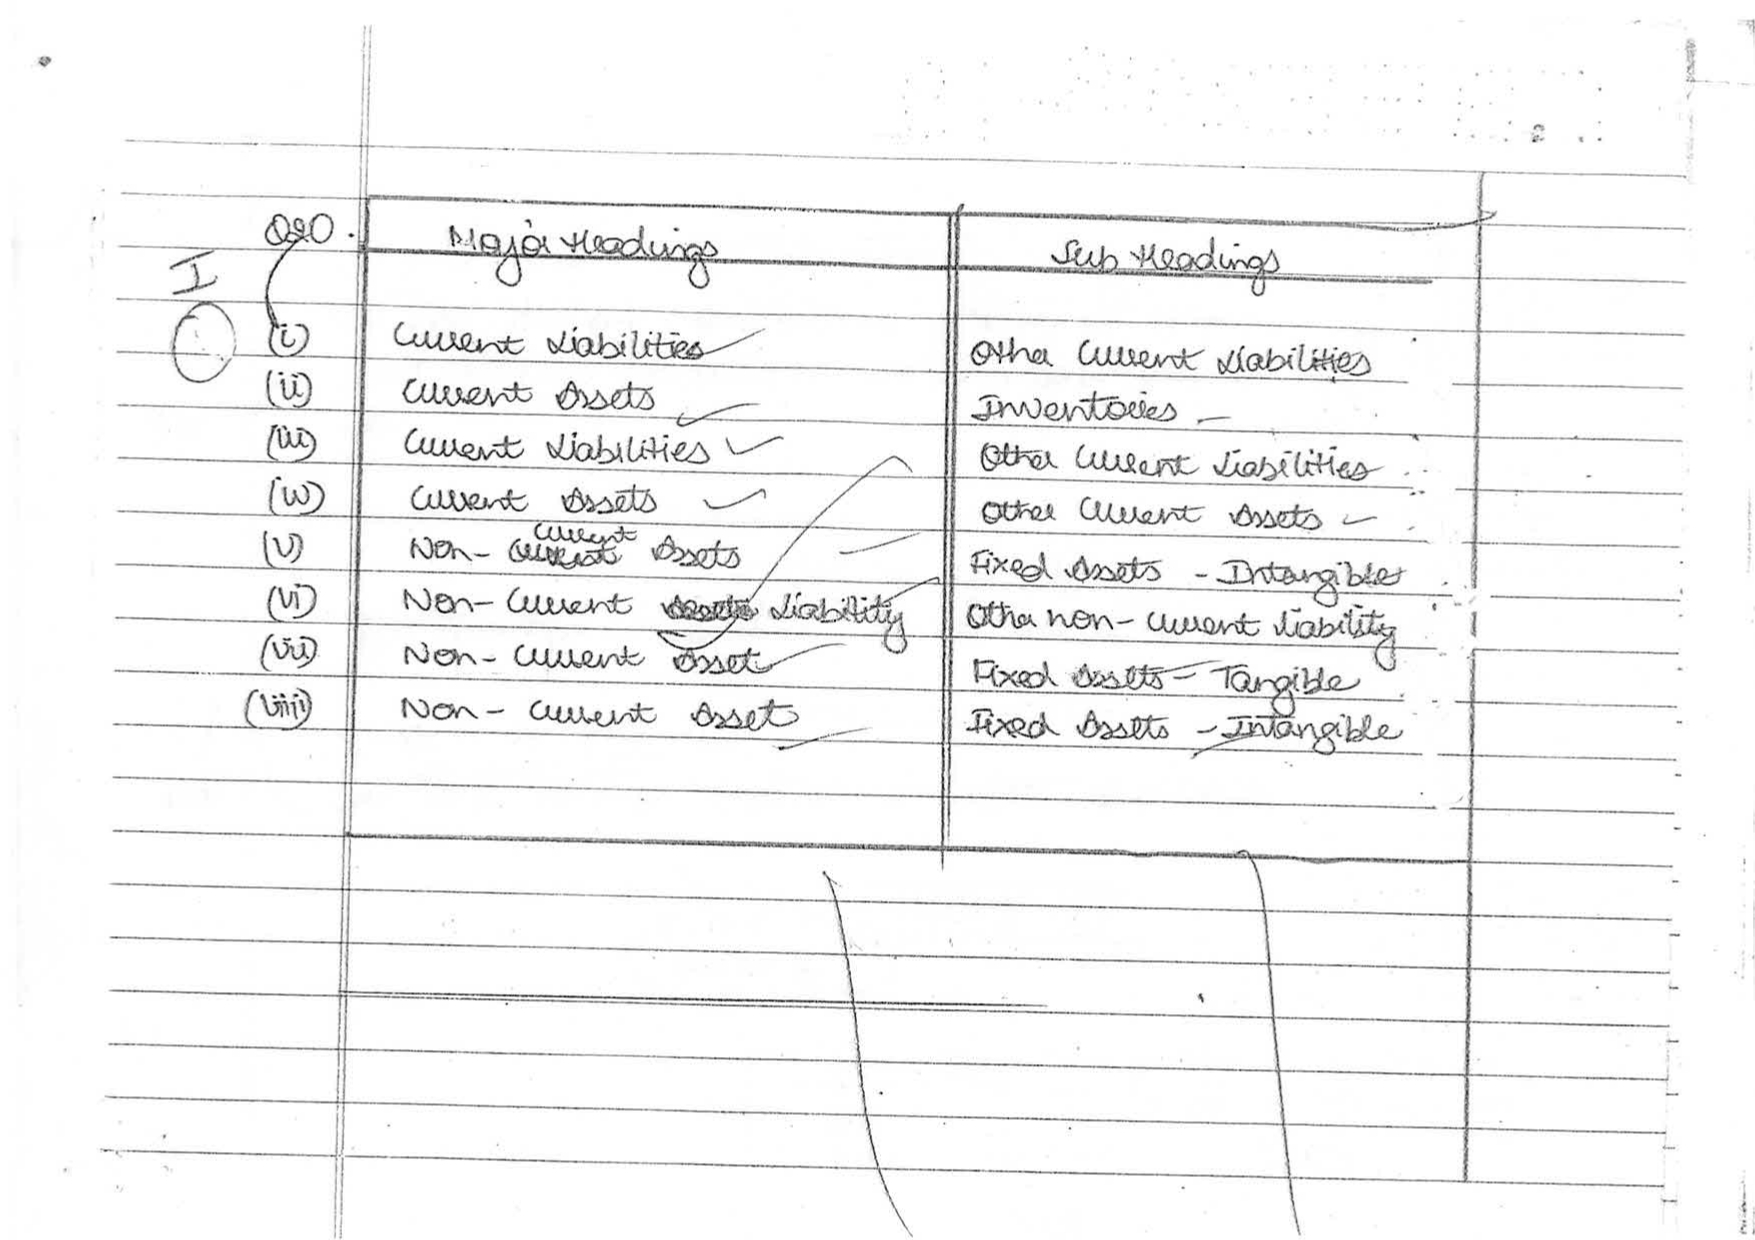 Q20. Major Headings Sub Headings
I
(i) Current Liabilities Other Current Liabilities
(ii) Current Assets Inventories
(iii) Current Liabilities Other Current Liabilities
(iv) Current Assets Other Current Assets
(v) Non-Current Assets Fixed Assets - Intangible
(vi) Non-Current Liability Other non-current liability
(vii) Non-Current Asset Fixed Assets - Tangible
(viii) Non-Current Asset Fixed Assets - Intangible